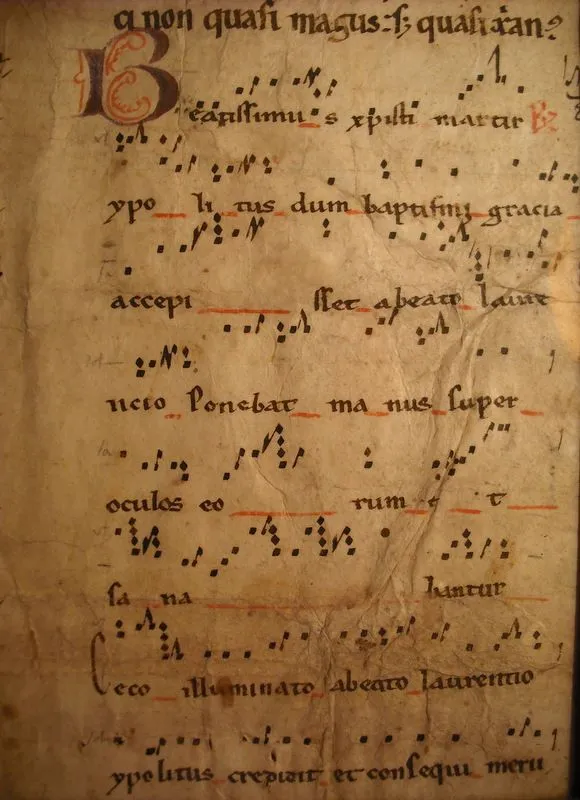 non quasi magus
Beatissimus xpisti martir
ypolitus dum baptismi gracia
accepisset abeato laure
ncio ponebat manus super
oculos eorum et
sanabantur
eco illuminato abeato laurentio
ypolitus credidit et consequi meru